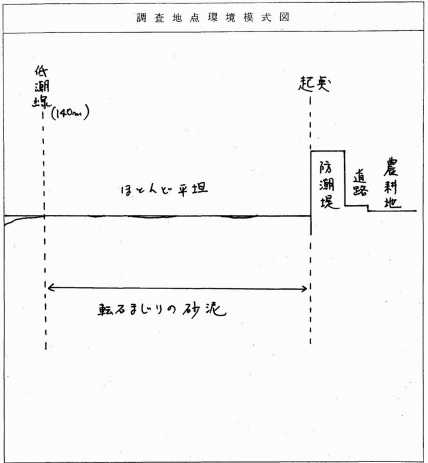 調査地点環境模式図
低潮線(140m)
起点
ほとんど平坦
防潮堤
道路
農耕地
転石まじりの砂泥